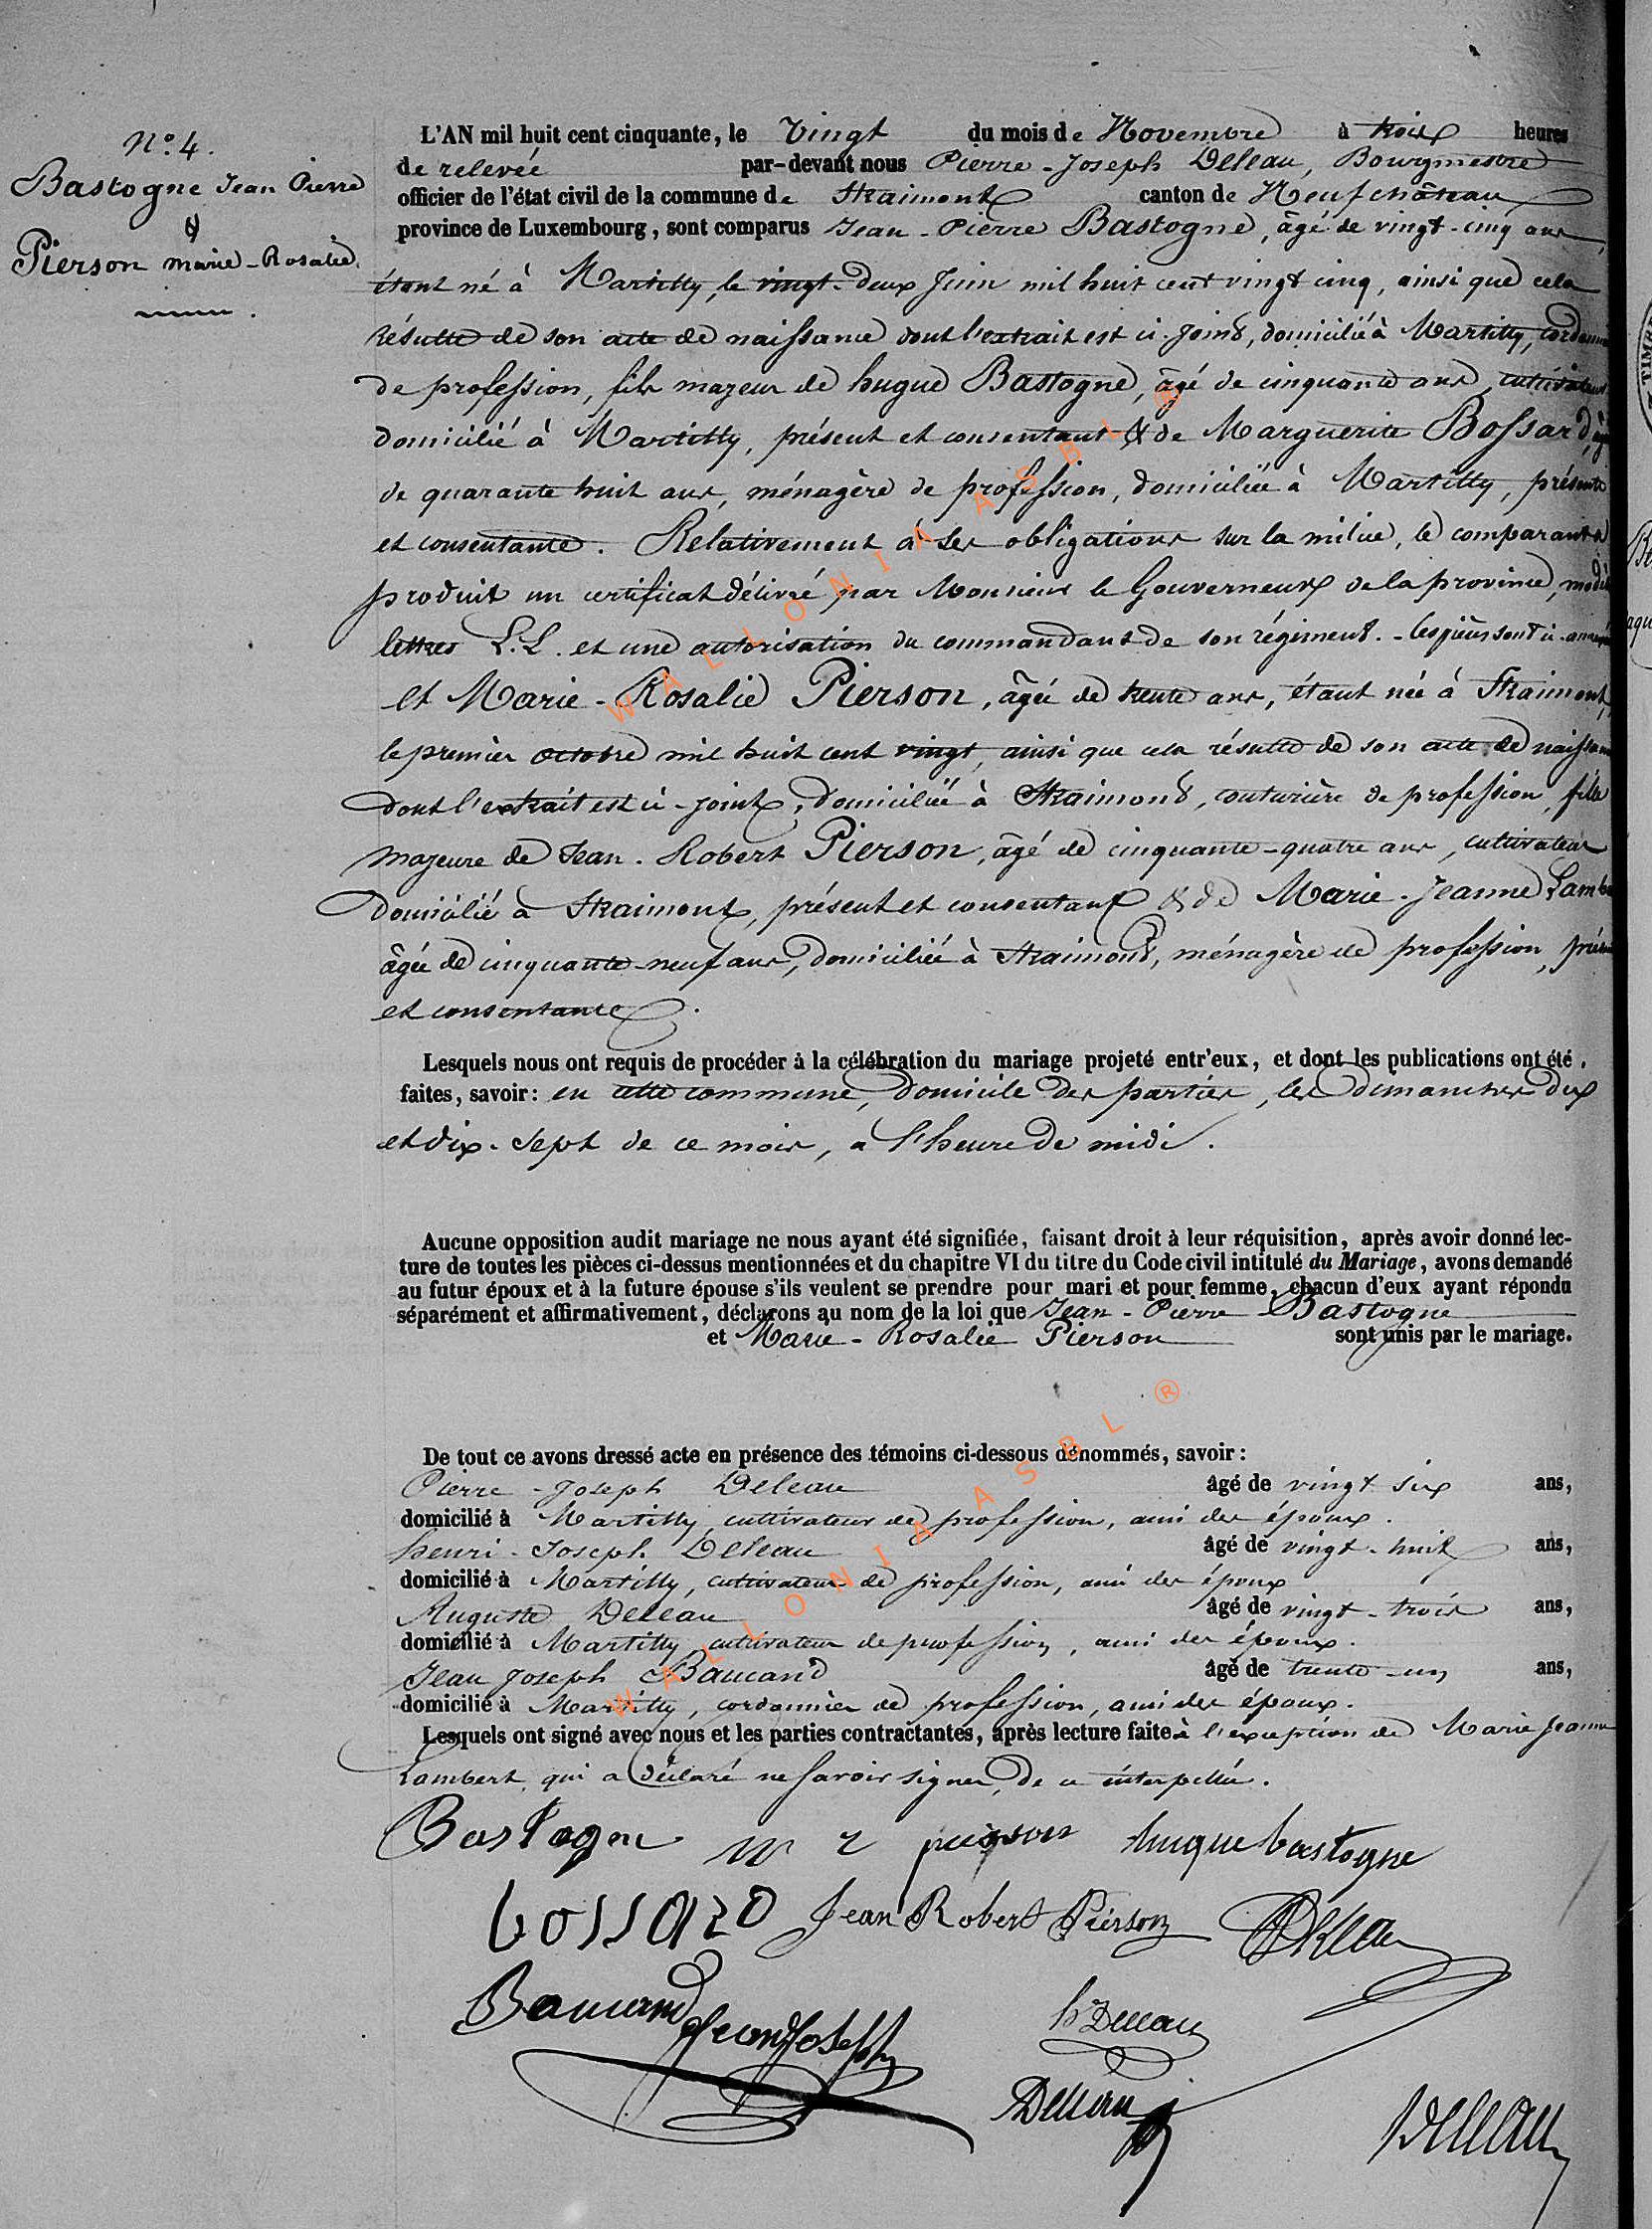 N° 4.
Bastogne Jean Pierre
&
Pierson Marie-Rosalie.
L'AN mil huit cent cinquante, le Vingt du mois de Novembre à trois heures
de relevée par-devant nous Pierre-Joseph Deleau, Bourgmestre
officier de l'état civil de la commune de Straimont canton de Neufchâteau
province de Luxembourg, sont comparus Jean-Pierre Bastogne, âgé de vingt-cinq ans,
étant né à Martilly, le vingt-deux Juin mil huit cent vingt cinq, ainsi que cela
résulte de son acte de naissance dont l'extrait est ci-joint, domicilié à Martilly, cordonnier
de profession, fils majeur de hugue Bastogne, âgé de cinquante ans, cultivateur
domicilié à Martilly, présent et consentant & de Marguerite Bossard, âgée
de quarante huit ans, ménagère de profession, domiciliée à Martilly, présente
et consentante. Relativement à ses obligations sur la milice, le comparant a
produit un certificat délivré par Monsieur le Gouverneur de la province, modèle
lettres L.L. et une autorisation du commandant de son régiment. - les pièces sont ci-annexées
et Marie-Rosalie Pierson, âgée de trente ans, étant née à Straimont,
le premier octobre mil huit cent vingt, ainsi que cela résulte de son acte de naissance
dont l'extrait est ci-joint, domiciliée à Straimont, couturière de profession, fille
majeure de Jean-Robert Pierson, âgé de cinquante-quatre ans, cultivateur
domicilié à Straimont, présent et consentant & de Marie-Jeanne Lambert
âgée de cinquante-neuf ans, domiciliée à Straimont, ménagère de profession, présente
et consentante.
Lesquels nous ont requis de procéder à la célébration du mariage projeté entr'eux, et dont les publications ont été
faites, savoir: en cette commune, domicile des parties, les dimanches dix
et dix-sept de ce mois, à l'heure de midi.
Aucune opposition audit mariage ne nous ayant été signifiée, faisant droit à leur réquisition, après avoir donné lec-
ture de toutes les pièces ci-dessus mentionnées et du chapitre VI du titre du Code civil intitulé du Mariage, avons demandé
au futur époux et à la future épouse s'ils veulent se prendre pour mari et pour femme, chacun d'eux ayant répondu
séparément et affirmativement, déclarons au nom de la loi que Jean-Pierre Bastogne
et Marie-Rosalie Pierson sont unis par le mariage.
De tout ce avons dressé acte en présence des témoins ci-dessous dénommés, savoir:
Pierre-Joseph Deleau âgé de vingt six ans,
domicilié à Martilly, cultivateur de profession, ami des époux.
henri-Joseph Deleau âgé de vingt-huit ans,
domicilié à Martilly, cultivateur de profession, ami des époux
Auguste Deleau âgé de vingt-trois ans,
domicilié à Martilly cultivateur de profession, ami des époux.
Jean Joseph Baucand âgé de trente-un ans,
domicilié à Martilly, cordonnier de profession, ami des époux.
Lesquels ont signé avec nous et les parties contractantes, après lecture faite à l'exception de Marie Jeanne
Lambert, qui a déclaré ne savoir signer, de ce interpellée.
Bastogne m r pierson hugue bastogne
bossard Jean Robert Pierson Deleau
Baucand Jean Joseph h Deleau
Deleau Deleau
WALLONIA ASBL ®
WALLONIA ASBL ®